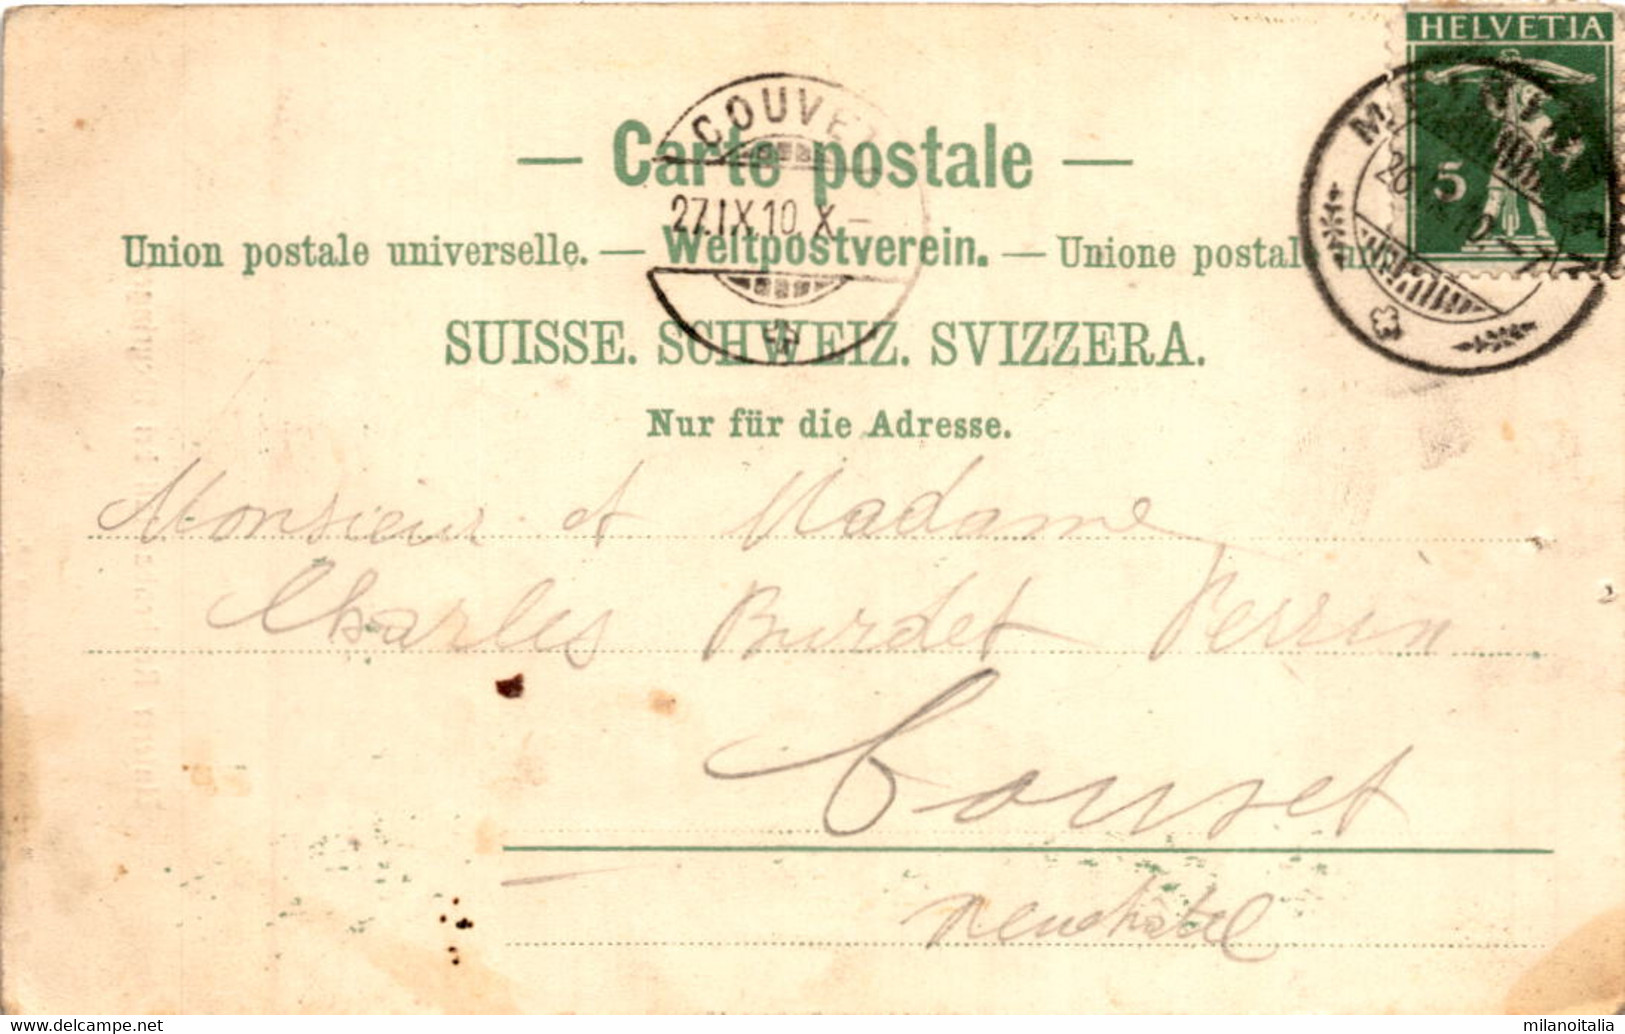 HELVETIA
5
COUVET
27.IX.10.X-
— Carte postale —
Union postale universelle. — Weltpostverein. — Unione postale
SUISSE. SCHWEIZ. SVIZZERA.
Nur für die Adresse.
Monsieur et Madame
Charles Burdet Perrin
Couvet
Neuchâtel
https://www.delcampe.net
milanoitalia